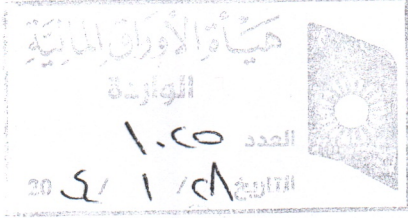 هيأة الأوراق المالية
الواردة
العدد ١٠٢٥
التاريخ ٢٨/ ١ /٤ 20